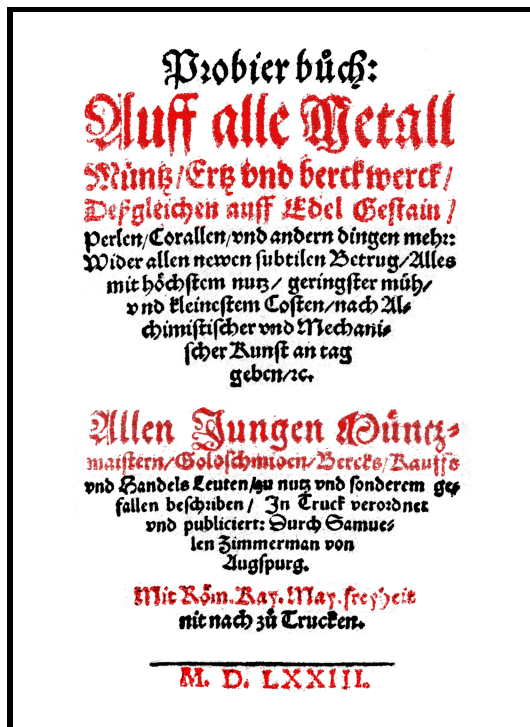 Probier bůch:
Auff alle Metall
Müntz/Ertz vnd berckwerck/
Deßgleichen auff Edel Gestain/
Perlen/Corallen/vnd andern dingen mehr:
Wider allen newen subtilen Betrug/Alles
mit höchstem nutz/ geringster müh/
vnd kleinestem Costen/nach Al⸗
chimistischer vnd Mechani⸗
scher Kunst an tag
geben/ꝛc.
Allen Jungen Müntz⸗
maistern/Goldschmiden/Bercks/Kauffs
vnd Handels Leuten/zu nutz vnd sonderem ge⸗
fallen beschriben/ In Truck verordnet
vnd publiciert: Durch Samue⸗
len Zimmerman von
Augspurg.
Mit Röm. Kay. May. freyheit
nit nach zů Trucken.
M. D. LXXIII.